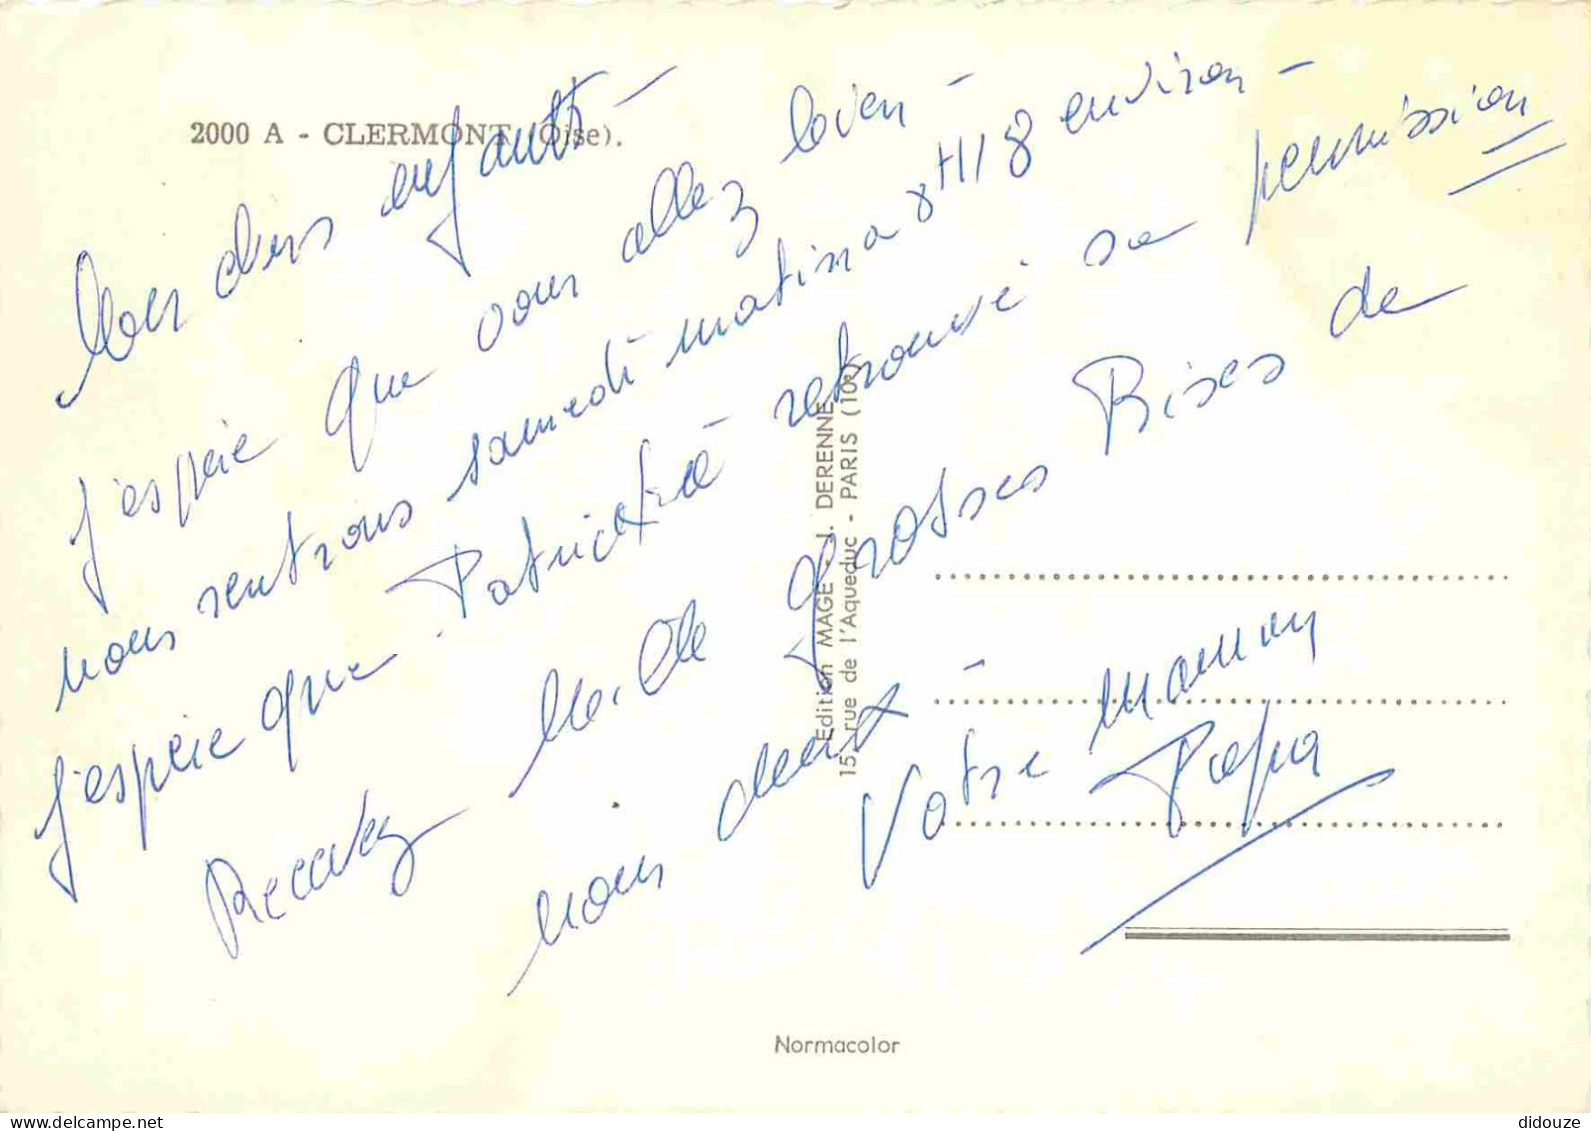 2000 A - CLERMONT (Oise).
Mes chers enfants -
J'espère que vous allez bien -
nous rentrons samedi matin a 8H18 environ -
J'espère que Patrick a retrouvé sa permission
Recevez Mille grosses Bises de
nous deux -
Votre Maman
Papa
Edition MAGE - J. DERENNE
15, rue de l'Aqueduc - PARIS (10e)
Normacolor
delcampe.net
didouze